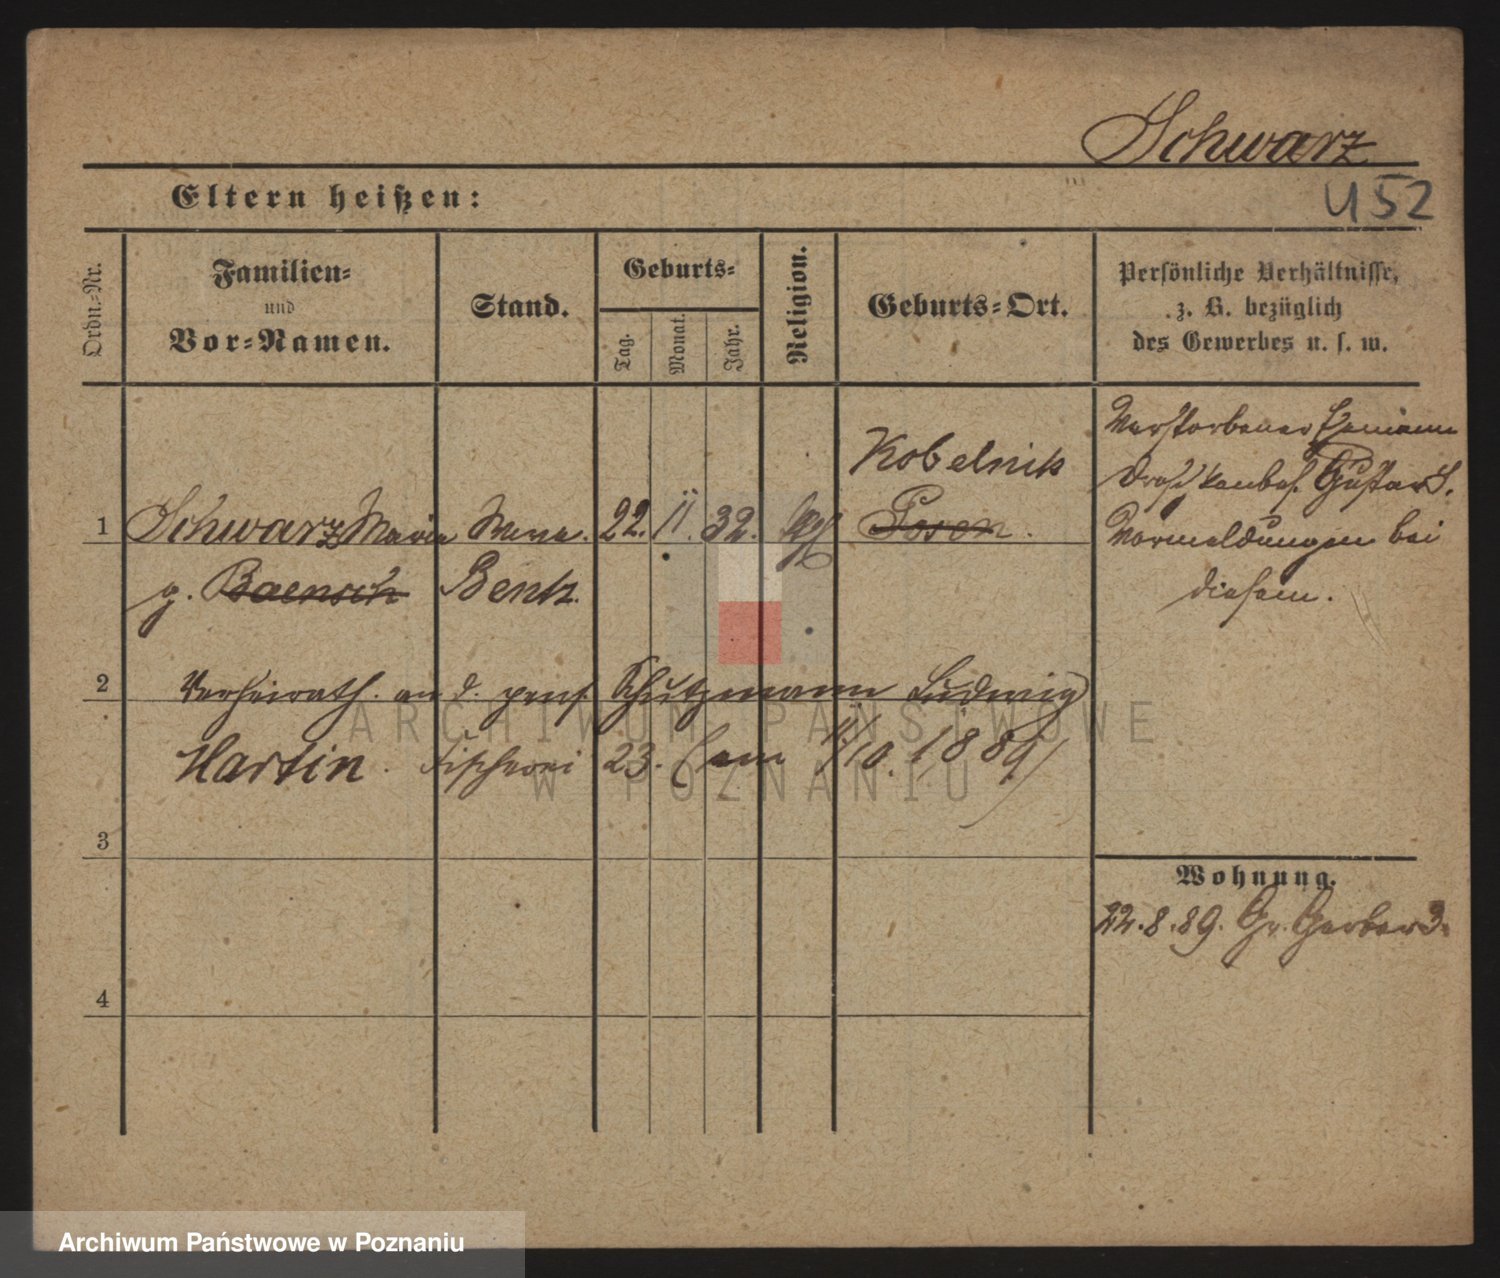 Schwarz
U 52
Eltern heißen:
Ordn.-Nr.
Familien-
und
Vor-Namen.
Stand.
Geburts-
Tag.
Monat.
Jahr.
Religion.
Geburts-Ort.
Persönliche Verhältnisse,
z. B. bezüglich
des Gewerbes u. s. w.
Kobelnik
1 Schwarz Marie Wwe. 22. 11. 32. Posen.
g. Baensch Bentz.
Verstorbener Ehemann
Gustav S.
Vormeldungen bei
diesem.
2 Verheirath. an d. pens. Schutzmann Ludwig
Hartin. Fischerei 23. 11/10. 1889
3
4
Wohnung.
22. 8. 89. Gr. Gerber 3.
ARCHIWUM PAŃSTWOWE
W POZNANIU
Archiwum Państwowe w Poznaniu